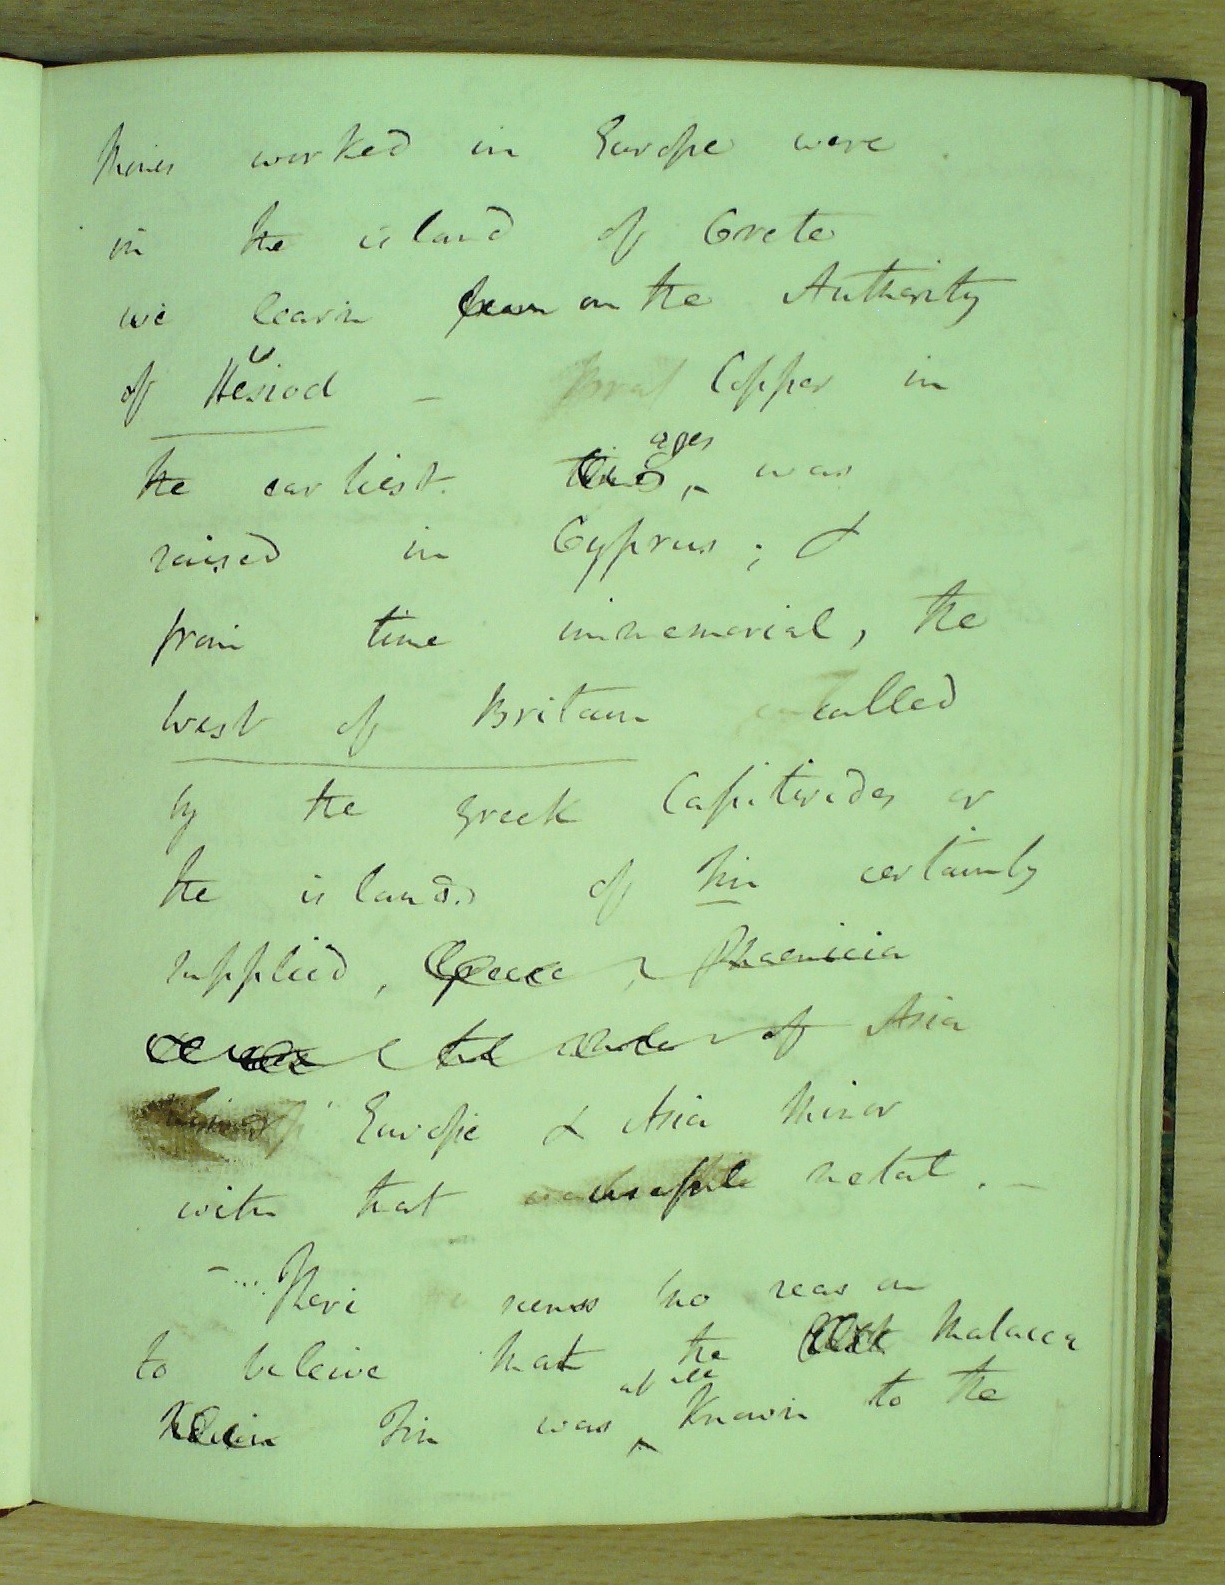 Mines worked in Europe were
in the island of Crete
we learn from on the Authority
of Hesiod – Copper in
the earliest times ages was
raised in Cyprus; &
from time immemorial, the
West of Britain called
by the Greek Capiterides or
the islands of Tin certainly
supplied, Greece, Phaenicia
of Asia
Minor Europe & Asia Minor
with that useful metal. –
– ... There seems no reason
to beleive that the Malacca
Tin was at all Known to the